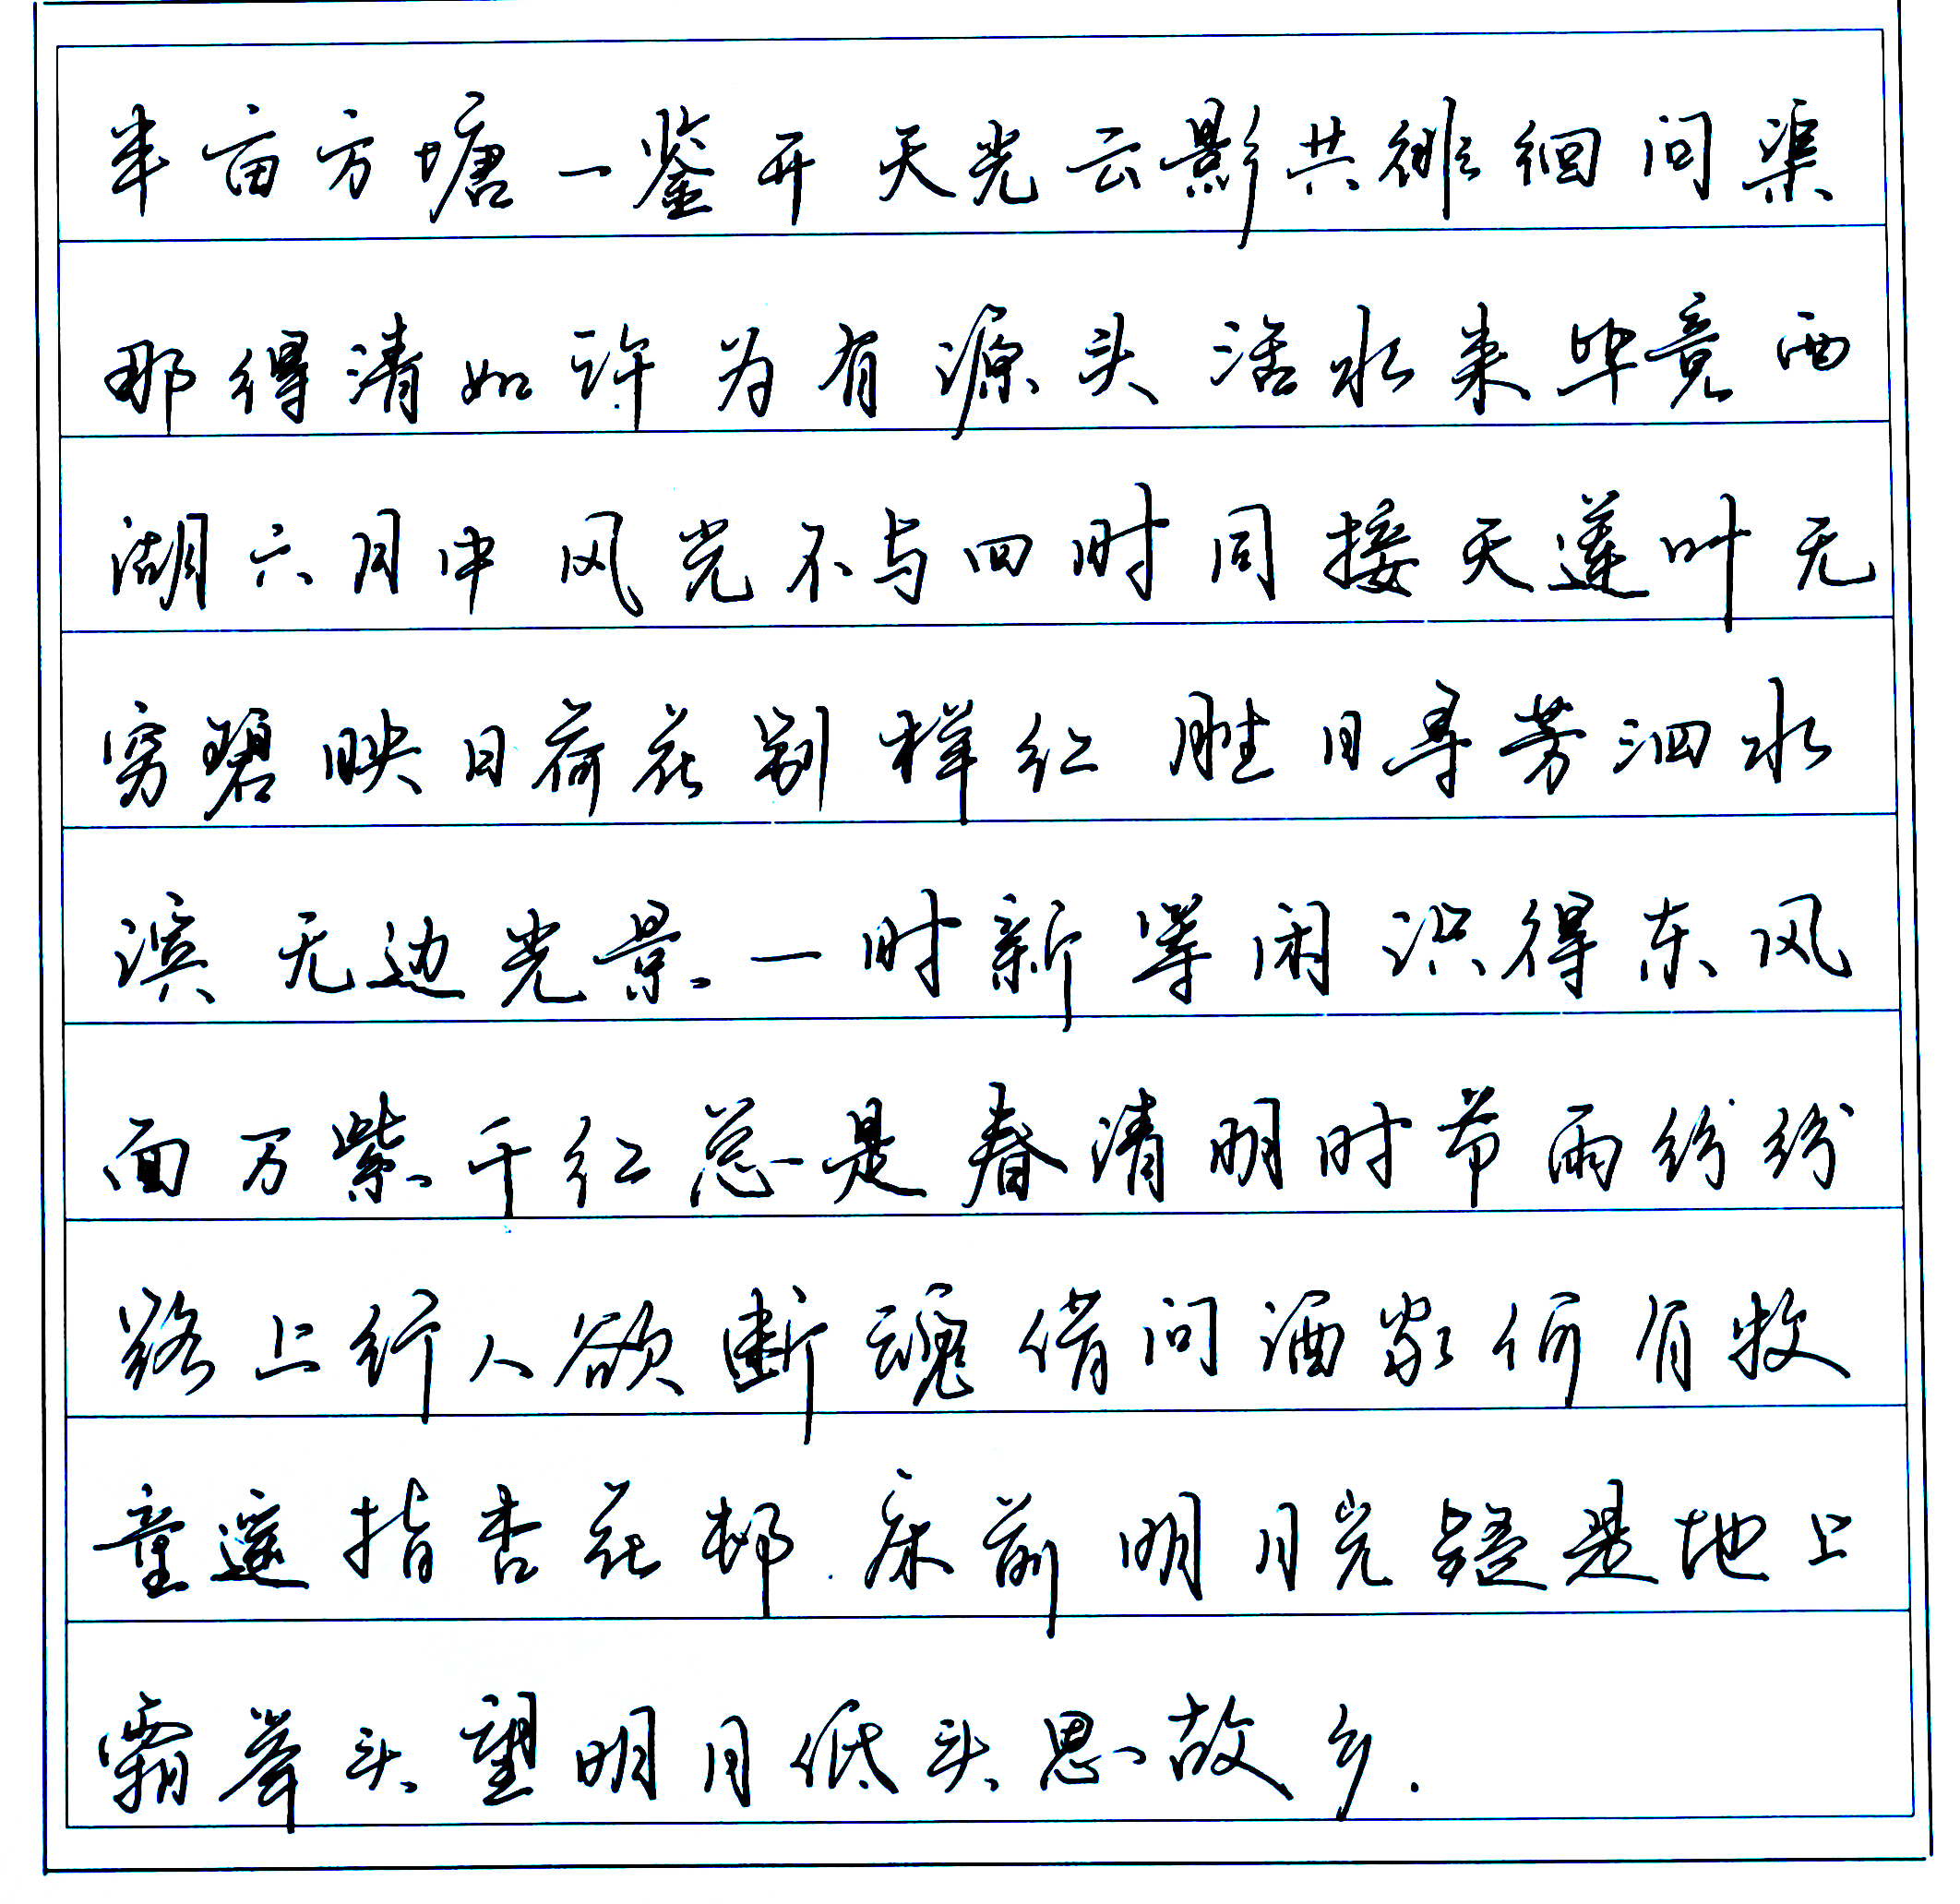 半亩方塘一鉴开天光云影共徘徊问渠
那得清如许为有源头活水来毕竟西
湖六月中风光不与四时同接天莲叶无
穷碧映日荷花别样红胜日寻芳泗水
滨无边光景一时新等闲识得东风
面万紫千红总是春清明时节雨纷纷
路上行人欲断魂借问酒家何有牧
童遥指杏花邨.床前明月光疑是地上
霜举头望明月低头思故乡.